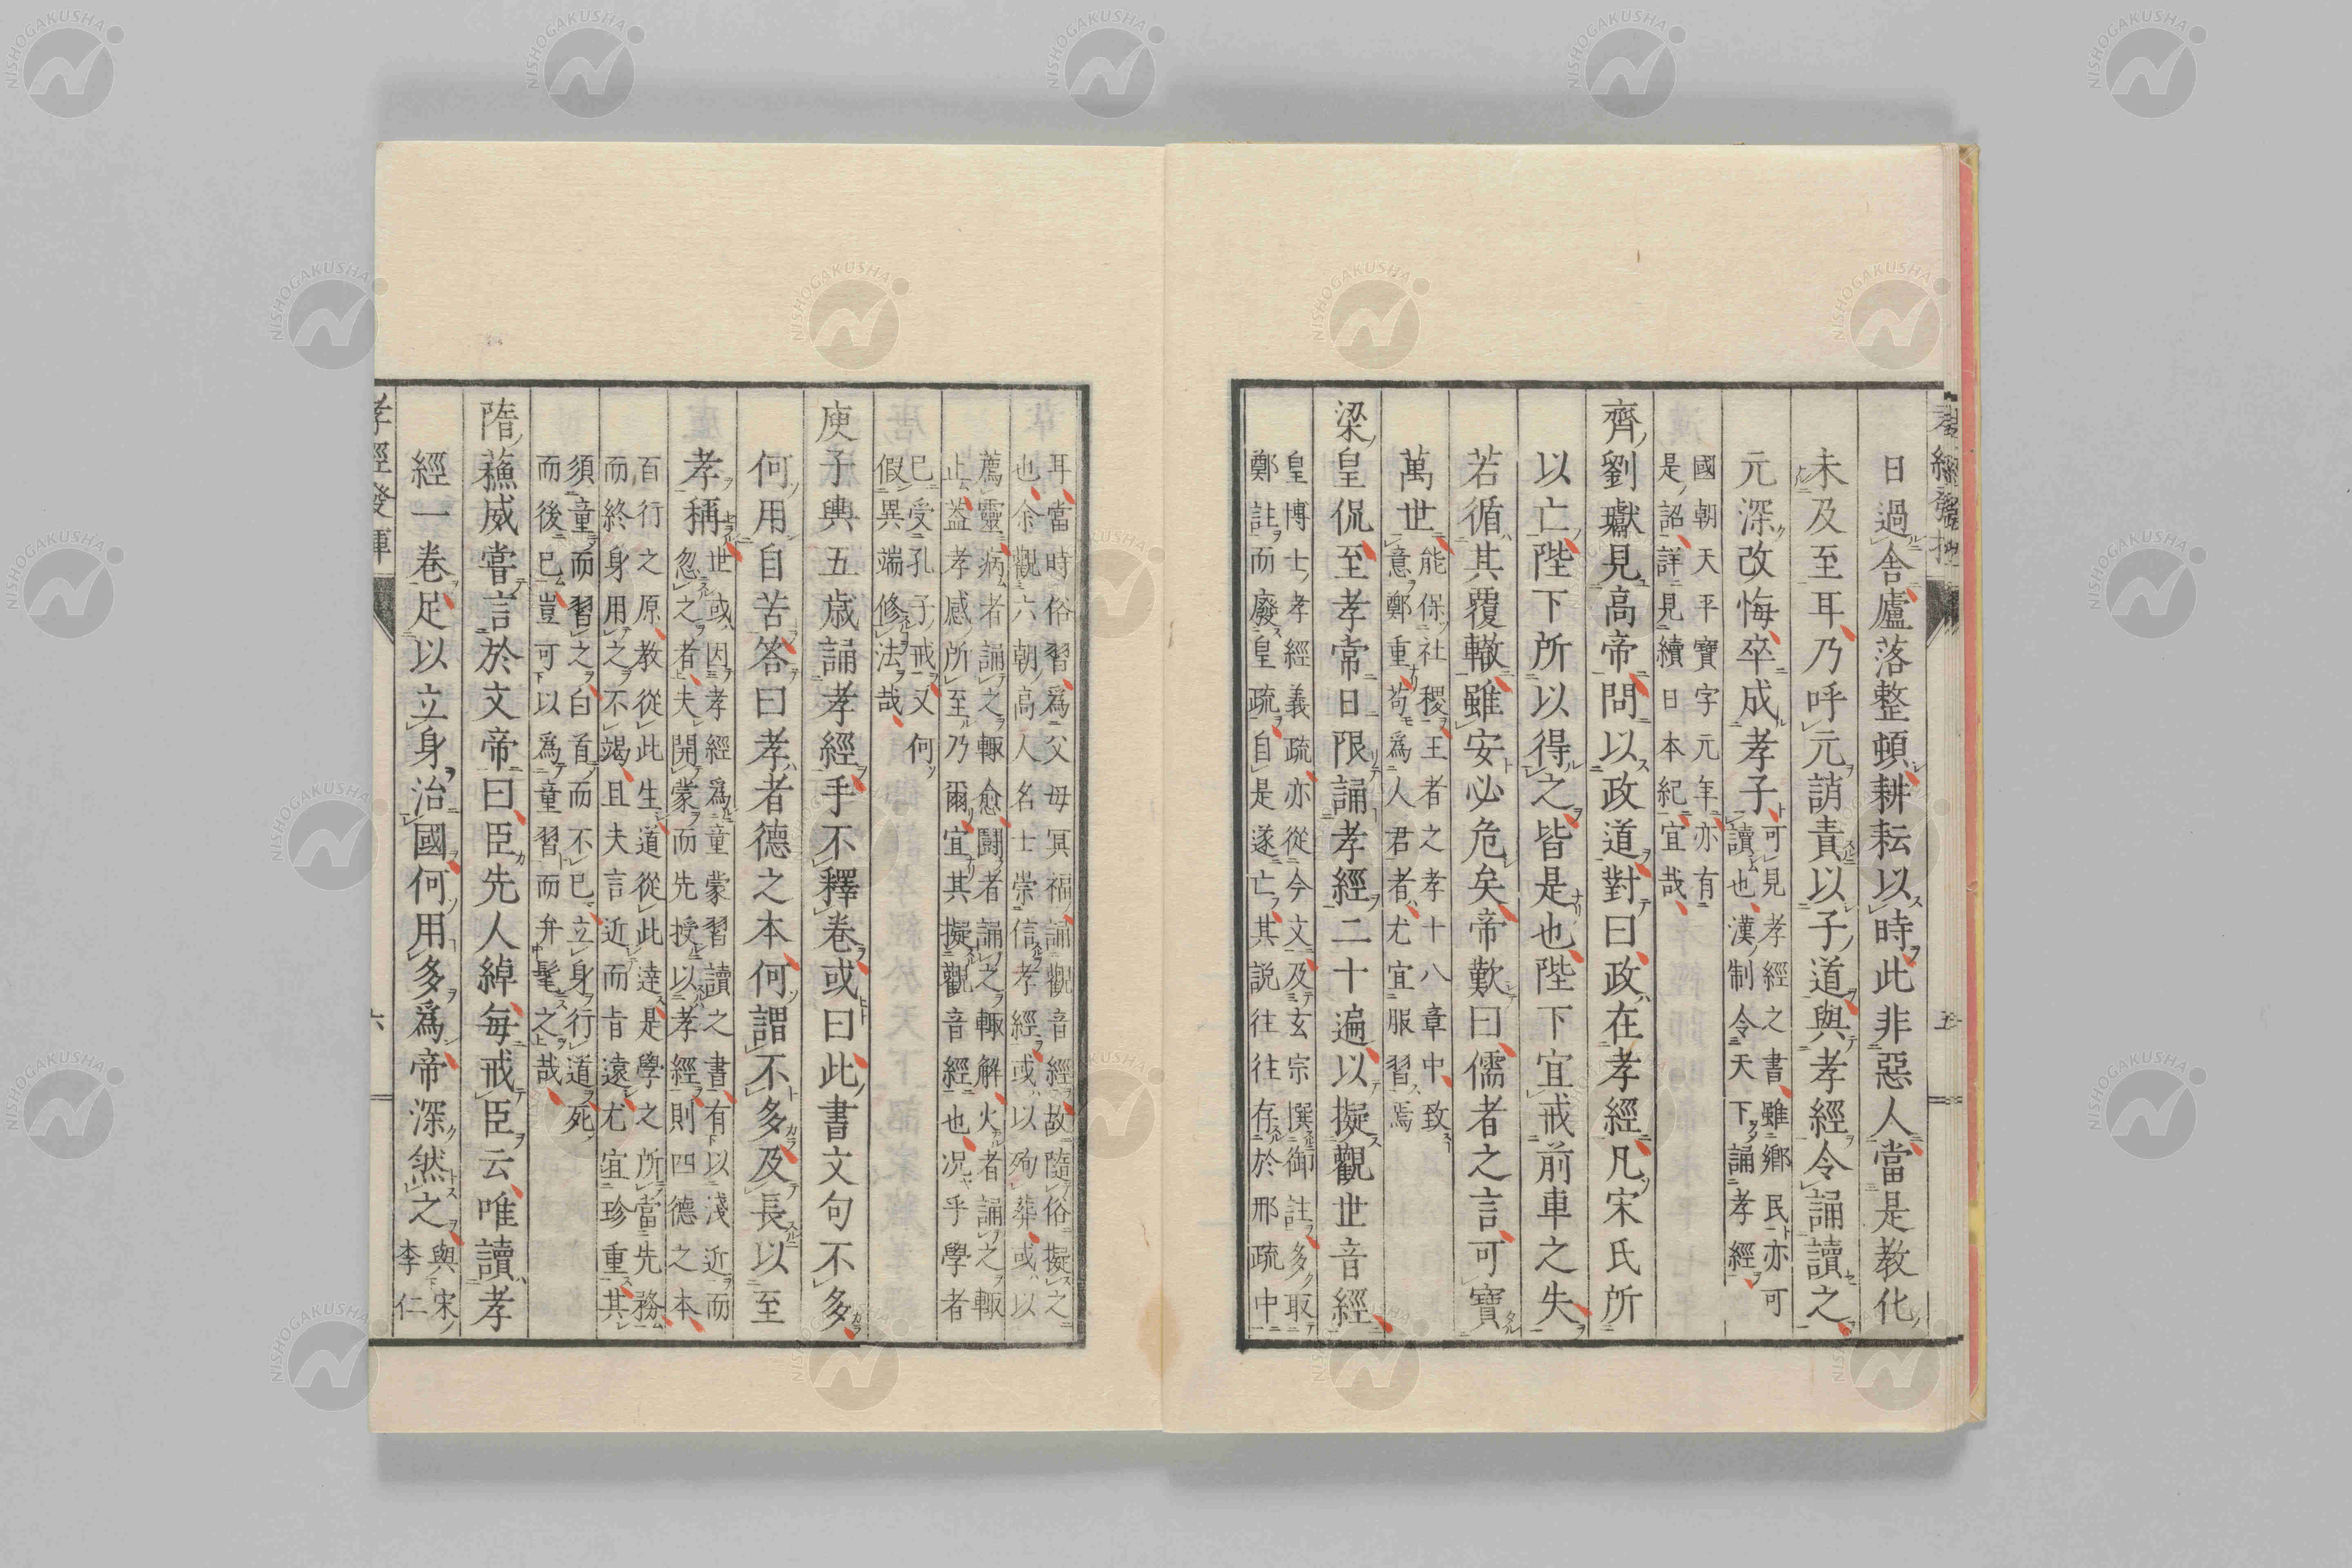 日過舍廬落整頓耕耘以時此非惡人當是教化
未及至耳乃呼元誚責以子道與孝經令誦讀之
元深改悔卒成孝子
可見孝經之書雖鄉民亦可
讀也漢制令天下誦孝經
國朝天平寶字元年亦有
是詔詳見續日本紀宜哉
齊劉瓛見高帝問以政道對曰政在孝經凡宋氏所
以亡陛下所以得之皆是也陛下宜戒前車之失
若循其覆轍雖安必危矣帝歎曰儒者之言可寶
萬世
能保社稷王者之孝十八章中致
意鄭重苟爲人君者尤宜服習焉
梁皇侃至孝常日限誦孝經二十遍以擬觀世音經
皇博士孝經義疏亦從今文及玄宗撰御註多取
鄭註而廢皇疏自是遂亡其説往往存於邢疏中
耳當時俗習爲父母冥福誦觀音經故隨俗擬之
也余觀六朝高人名士崇信孝經或以殉葬或以
薦靈病者誦之輙愈鬪者誦之輙解火者誦之輙
止葢孝感所至乃爾宜其擬觀音經也况乎學者
已受孔子戒又何
假異端修法哉
庾子輿五歳誦孝經手不釋卷或曰此書文句不多
何用自苦答曰孝者德之本何謂不多及長以至
孝稱
世或因孝經爲童蒙習讀之書有以淺近而
忽之者夫開蒙而先授以孝經則四德之本
百行之原教從此生道從此達是學之所當先務
而終身用之不竭且夫言近而旨遠尤宜珍重其
須童而習之白首而不已立身行道死
而後已豈可以爲童習而弁髦之哉
隋蘓威嘗言於文帝曰臣先人綽每戒臣云唯讀孝
經一卷足以立身治國何用多爲帝深然之
與宋
李仁
孝經發
六
五
NISHOGAKUSHA